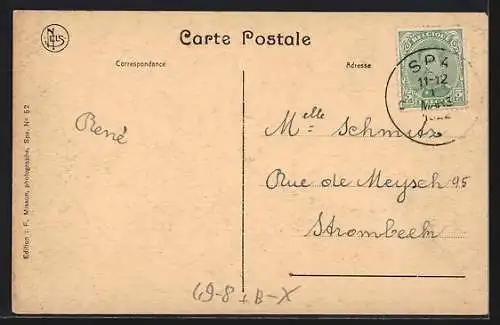 NELS
Carte Postale
Correspondance
Adresse
BELGIQUE
SPA
11-12
MAR
René
Melle Schmitz
Rue de Meysch 95
Strombeek
Edition : F. Misson, photographe, Spa. N° 52